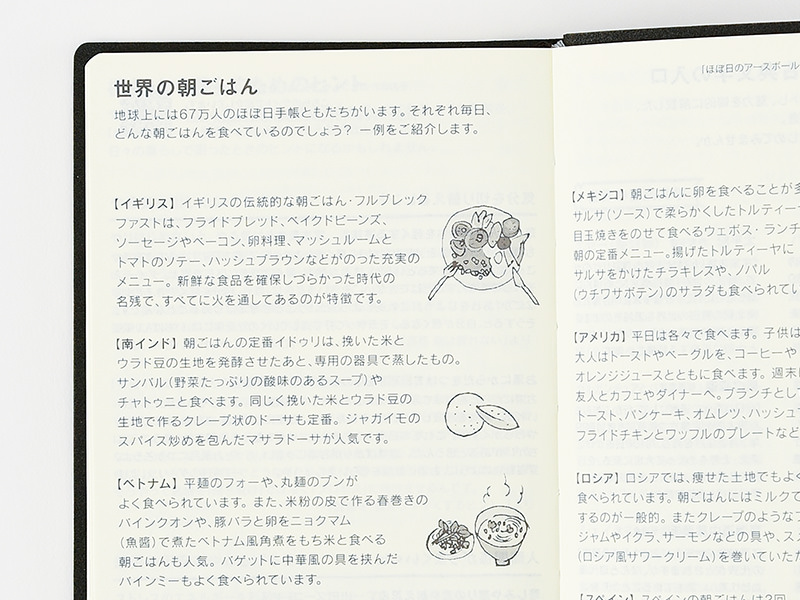 世界の朝ごはん
地球上には67万人のほぼ日手帳ともだちがいます。それぞれ毎日、
どんな朝ごはんを食べているのでしょう? 一例をご紹介します。
【イギリス】イギリスの伝統的な朝ごはん・フルブレック
ファストは、フライドブレッド、ベイクドビーンズ、
ソーセージやベーコン、卵料理、マッシュルームと
トマトのソテー、ハッシュブラウンなどがのった充実の
メニュー。新鮮な食品を確保しづらかった時代の
名残で、すべてに火を通してあるのが特徴です。
【南インド】朝ごはんの定番イドゥリは、挽いた米と
ウラド豆の生地を発酵させたあと、専用の器具で蒸したもの。
サンバル(野菜たっぷりの酸味のあるスープ)や
チャトゥニと食べます。同じく挽いた米とウラド豆の
生地で作るクレープ状のドーサも定番。ジャガイモの
スパイス炒めを包んだマサラドーサが人気です。
【ベトナム】平麺のフォーや、丸麺のブンが
よく食べられています。また、米粉の皮で作る春巻きの
バインクオンや、豚バラと卵をニョクマム
(魚醤)で煮たベトナム風角煮をもち米と食べる
朝ごはんも人気。バゲットに中華風の具を挟んだ
バインミーもよく食べられています。
「ほぼ日のアースボール
【メキシコ】朝ごはんに卵を食べることが多
サルサ(ソース)で柔らかくしたトルティーヤ
目玉焼きをのせて食べるウェボス・ランチ
朝の定番メニュー。揚げたトルティーヤに
サルサをかけたチラキレスや、ノパル
(ウチワサボテン)のサラダも食べられてい
【アメリカ】平日は各々で食べます。子供は
大人はトーストやベーグルを、コーヒーや
オレンジジュースとともに食べます。週末は
友人とカフェやダイナーへ。ブランチとし
トースト、パンケーキ、オムレツ、ハッシュブ
フライドチキンとワッフルのプレートなど
【ロシア】ロシアでは、痩せた土地でもよく
食べられています。朝ごはんにはミルクで
するのが一般的。またクレープのような
ジャムやイクラ、サーモンなどの具や、スメ
(ロシア風サワークリーム)を巻いていただ
【スペイン】スペインの朝ごはんは2回